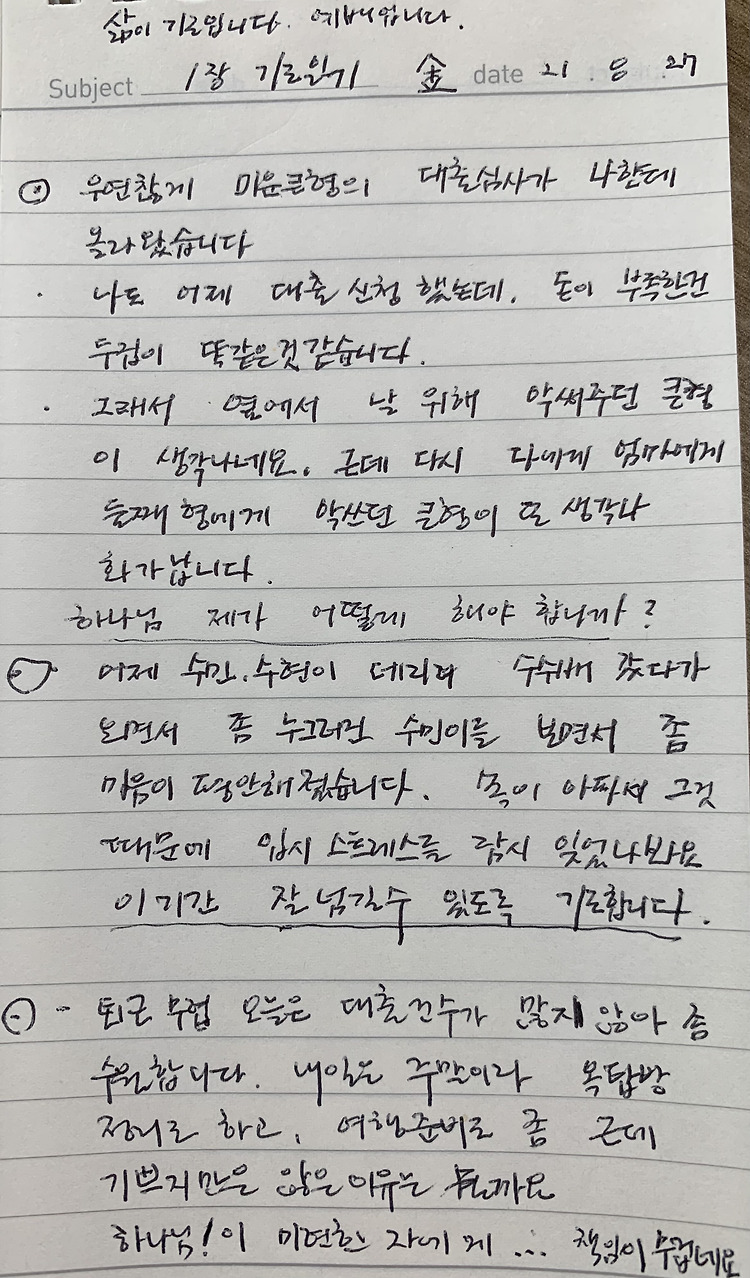 삶이 기도입니다. 예배입니다.
Subject 1장 기도일기 金 date 21 . 8 . 27
우연찮게 미운큰형의 대출심사가 나한테
올라왔습니다
· 나도 어제 대출신청 했는데, 돈이 부족한건
두집이 똑같은것 같습니다.
· 그래서 옆에서 날 위해 악써주던 큰형
이 생각나네요. 근데 다시 다시 엄마에게
둘째형에게 악쓰던 큰형이 또 생각나
화가 납니다.
하나님 제가 어떻게 해야 합니까?
어제 수민, 수현이 데리러 갔다가
오면서 좀 누그러진 수민이를 보면서 좀
마음이 평안해졌습니다. 목이 아파서 그것
때문에 입시 스트레스를 잠시 잊었나봐요
이 기간 잘 넘길수 있도록 기도합니다.
- 퇴근 무렵 오늘은 대출건수가 많지 않아 좀
수월합니다. 내일은 주말이라 옥탑방
정리도 하고, 여행준비도 좀 근데
기쁘지만은 않은 이유는 뭘까요
하나님! 이 미련한 자에게 ... 책임이 무겁네요